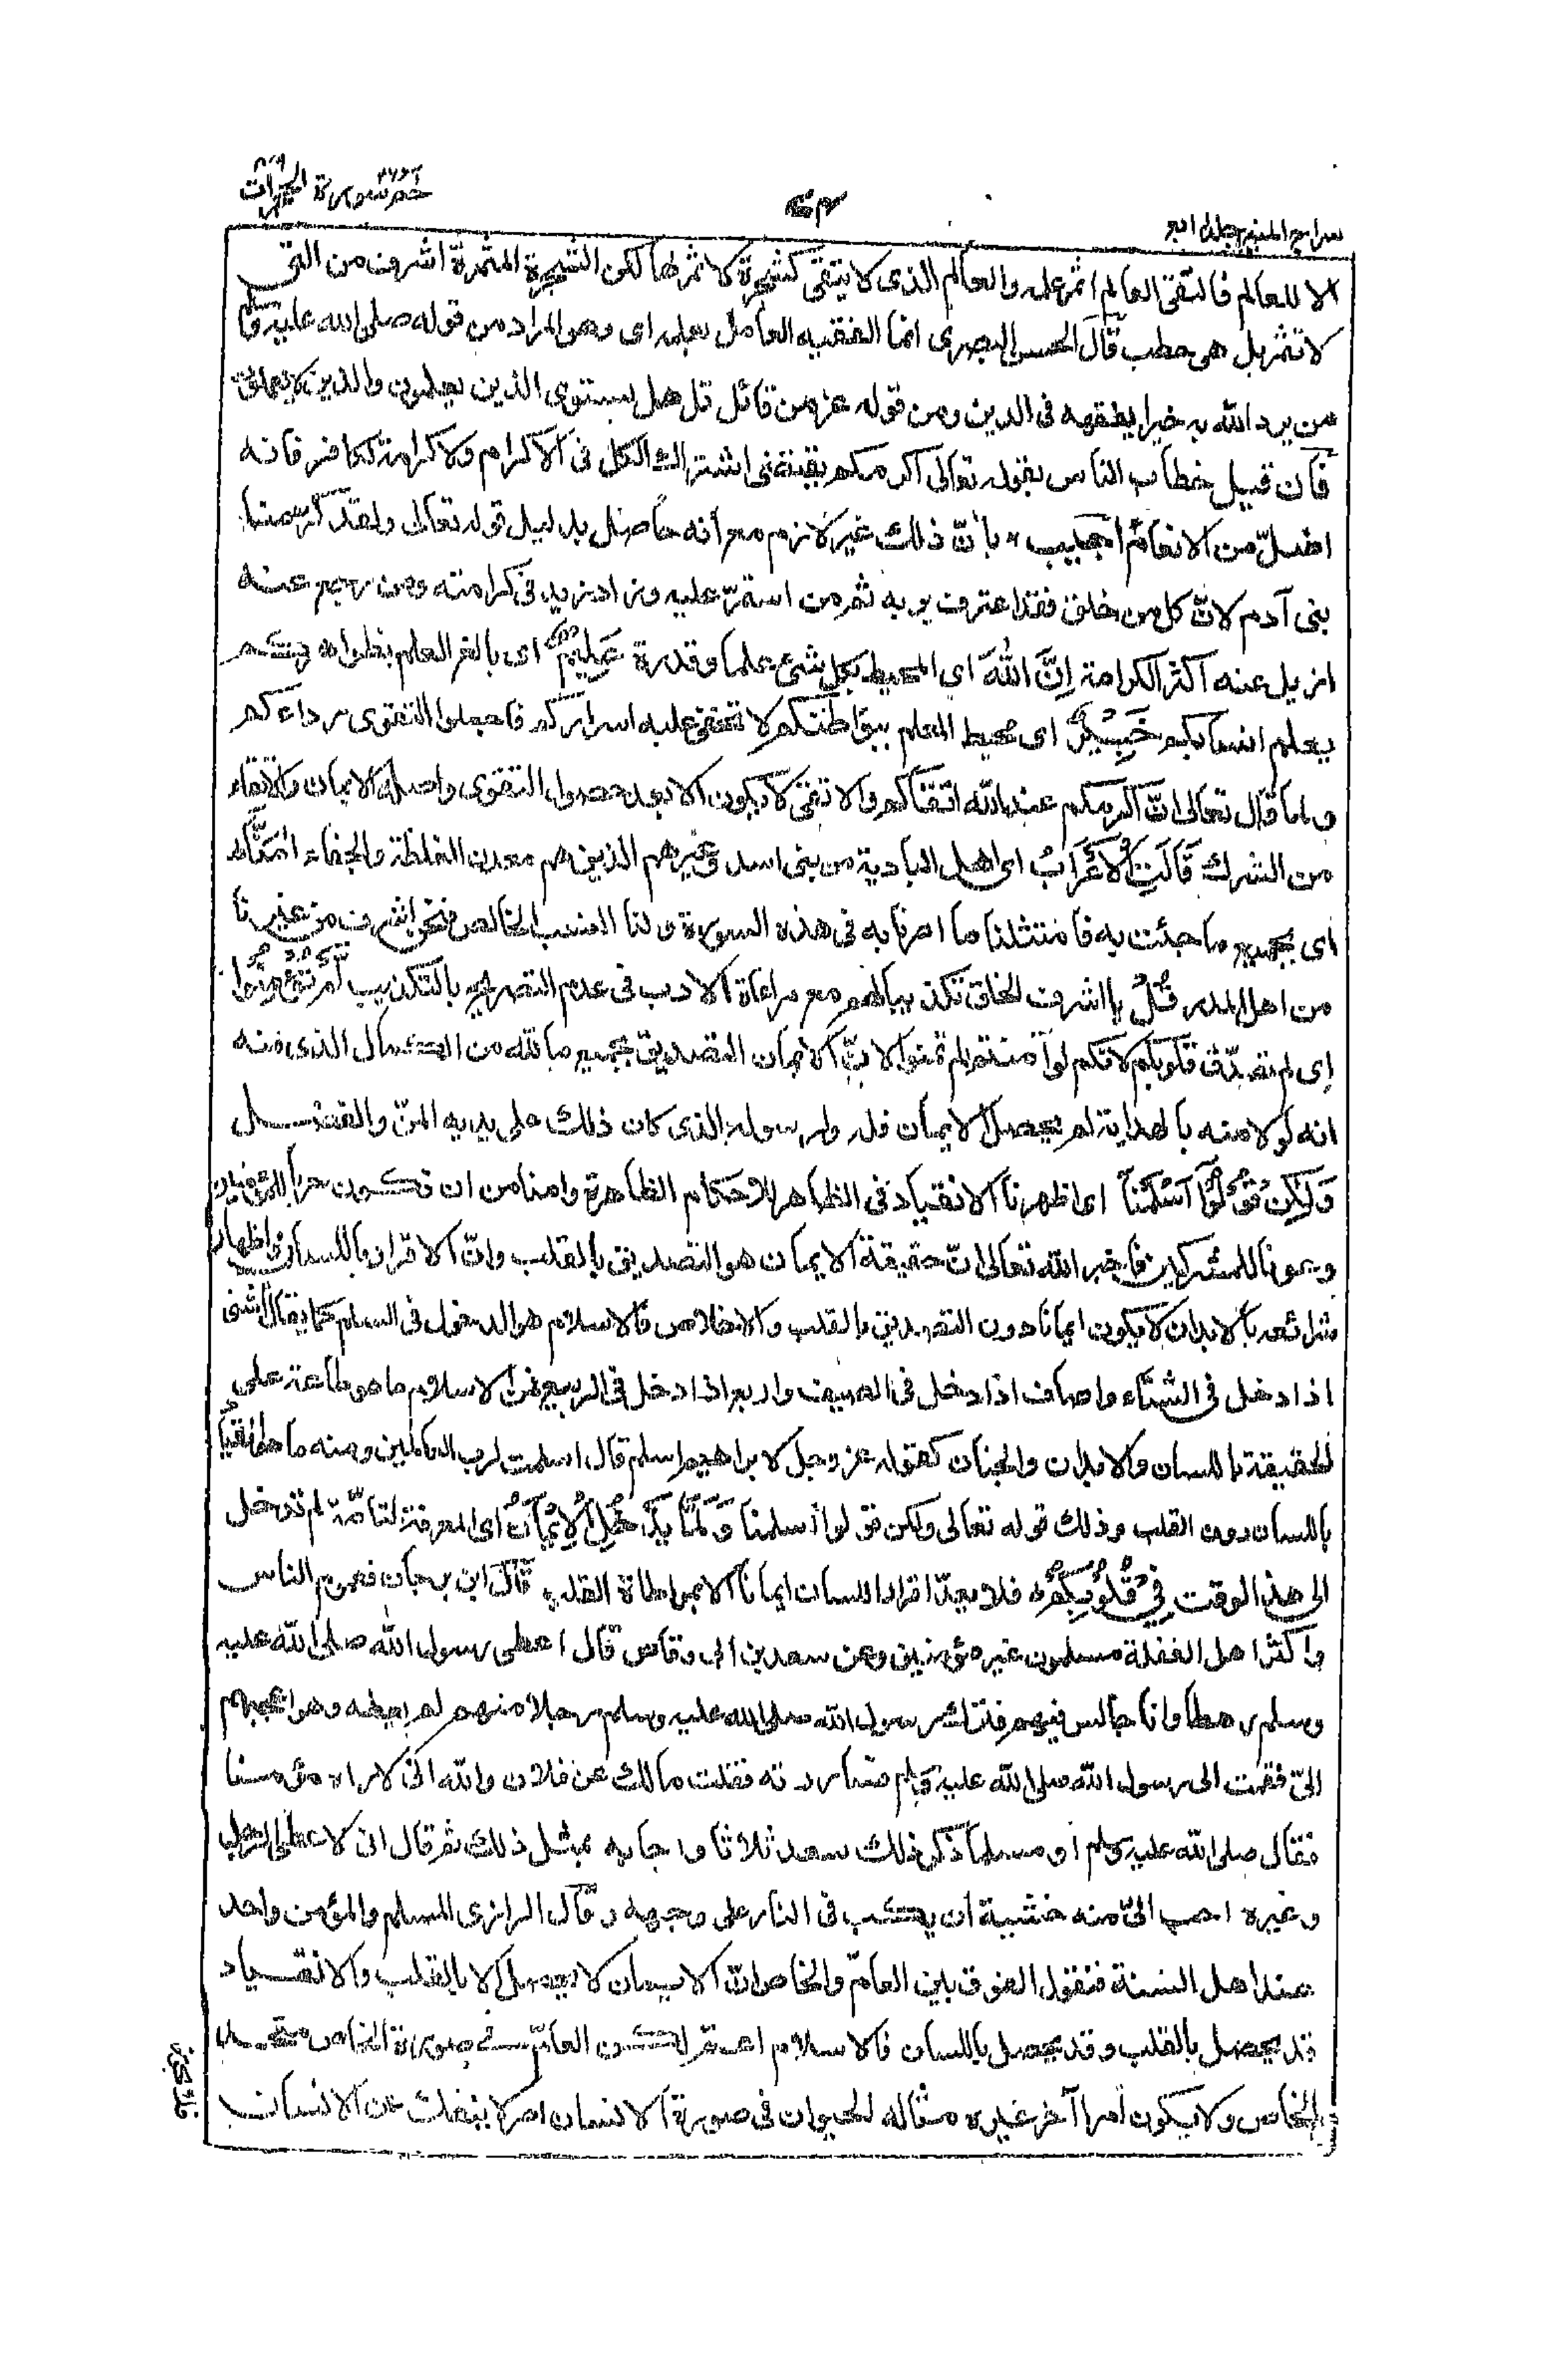 سراج المنير جلد رابع
حم سورة الحجرات
الا للعالم فالتقى العالم اثمر علمه والعالم الذي لا يتقى كشجرة لا ثمر لها لكن الشجرة المثمرة اشرف من التى
لا تثمر بل هى حطب قال الحسن البصرى انما الفقيه العامل بعلمه اى وهو المراد من قوله صلى الله عليه وسلم
من يرد الله به خيرا يفقهه فى الدين ومن قوله عز من قائل قل هل يستوى الذين يعلمون والذين لا يعلمون
فان قيل خطاب الناس بقوله تعالى اكرمكم يقتضى اشتراك الكل فى الاكرام ولا كرامة لكافر فانه
اضل من الانعام اجيب بانّ ذلك غير لازم مع أنه حاصل بدليل قوله تعالى ولقد كرمنا
بنى آدم لانّ كل من خلق فقد اعترف بربه ثم من استمرّ عليه وزاد زيد فى كرامته ومن رجع عنه
ازيل عنه اكثر الكرامة اِنَّ اللهَ اي المحيط بكل شئ علما وقدرة عَلِيْمٌ اى بالغ العلم بظواهركم
يعلم انسابكم خَبِيْرٌ اى محيط العلم ببواطنكم لا تخفى عليه اسراركم فاجعلوا التقوى رداءكم
ولما قال تعالى انّ اكرمكم عند الله اتقاكم والاتقى لا يكون الا بعد حصول التقوى واصله الايمان والاتقاء
من الشرك قَالَتِ الْاَعْرَابُ اى اهل البادية من بنى اسد وغيرهم الذين هم معدن الغلظة والجفاء اٰمَنَّا
اى بجميع ما جئت به فامتثلنا ما امرنا به فى هذه السورة ولنا النسب الخالص فنحن اشرف من غيرنا
من اهل المدر قُلْ يا اشرف الخلق تكذيبا لهم مع مراعاة الادب فى عدم التصريح بالتكذيب لَّمْ تُؤْمِنُوْا
اى لم تصدّق قلوبكم لانكم لو آمنتم لم تمنوا لانّ الايمان التصديق بجميع ما لله من الكمال الذى منه
انه لولا منه بالهداية لم يحصل الايمان فله ولرسوله الذى كان ذلك على يديه المنّ والفضل
وَلٰكِنْ قُوْلُوْٓا اَسْلَمْنَا اى اظهرنا الانقياد فى الظاهر للاحكام الظاهرة وامنا من ان نكون حربا للمؤمنين
وعونا للمشركين فاخبر الله تعالى انّ حقيقة الايمان هو التصديق بالقلب وانّ الاقرار باللسان واظهار
شرائعه بالابدان لا يكون ايمانا دون التصديق بالقلب والاخلاص فالاسلام هو الدخول فى السلم كما يقال اشتى
اذا دخل فى الشتاء واصاف اذا دخل فى الصيف واربع اذا دخل فى الربيع فمن الاسلام ما هو طاعة على
الحقيقة باللسان والابدان والجنان كقوله عز وجل لابراهيم اسلم قال اسلمت لرب العالمين ومنه ما هو انقياد
باللسان دون القلب وذلك قوله تعالى ولكن قولوا أسلمنا وَلَمَّا يَدْخُلِ الْاِيْمَانُ اى المعرفة التامّة لم تدخل
الى هذا الوقت فِيْ قُلُوْبِكُمْ فلا يعدّ اقرار اللسان ايمانا الا بمواطأة القلب قال ابن برجان فعموم الناس
واكثر اهل الغفلة مسلمون غير مؤمنين وعن سعد بن ابى وقاص قال اعطى رسول الله صلى الله عليه
وسلم رهطا وانا جالس فيهم فترك رسول الله صلى الله عليه وسلم رجلا منهم لم يعطه وهو اعجبهم
الىّ فقمت الى رسول الله صلى الله عليه وسلم فساررته فقلت مالك عن فلان والله انى لاراه مؤمنا
فقال صلى الله عليه وسلم او مسلما ذكر ذلك سعد ثلاثا واجابه بمثل ذلك ثم قال انى لاعطى الرجل
وغيره احب الىّ منه خشية ان يكب فى النار على وجهه وقال الرازى المسلم والمؤمن واحد
عند اهل السنة فنقول الفرق بين العامّ والخاص انّ الايمان لا يحصل الا بالقلب والانقياد
قد يحصل بالقلب وقد يحصل باللسان فالاسلام اعمّ لكن العامّ فى صورة الخاص متحد مع
الخاص ولا يكون امرا آخر غيره مثاله الحيوان فى صورة الانسان امر لا ينفك عن الانسان